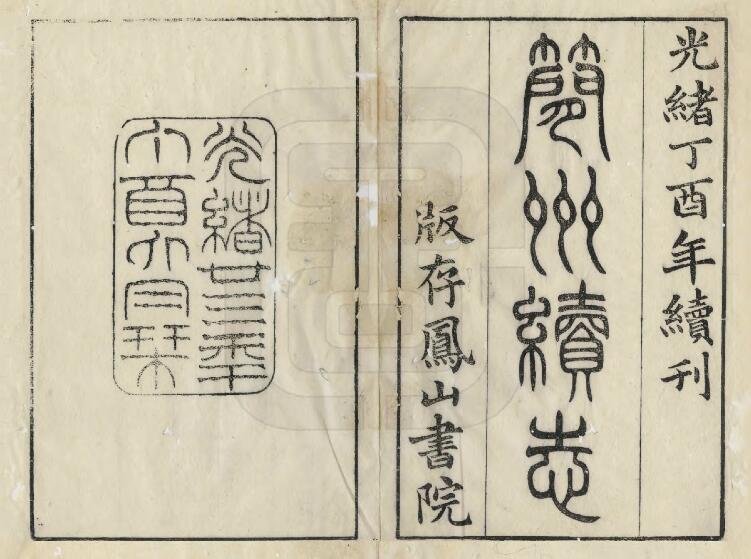 光緒丁酉年續刊
簡州續志
版存鳳山書院
光緒廿三年
丁酉六月栞